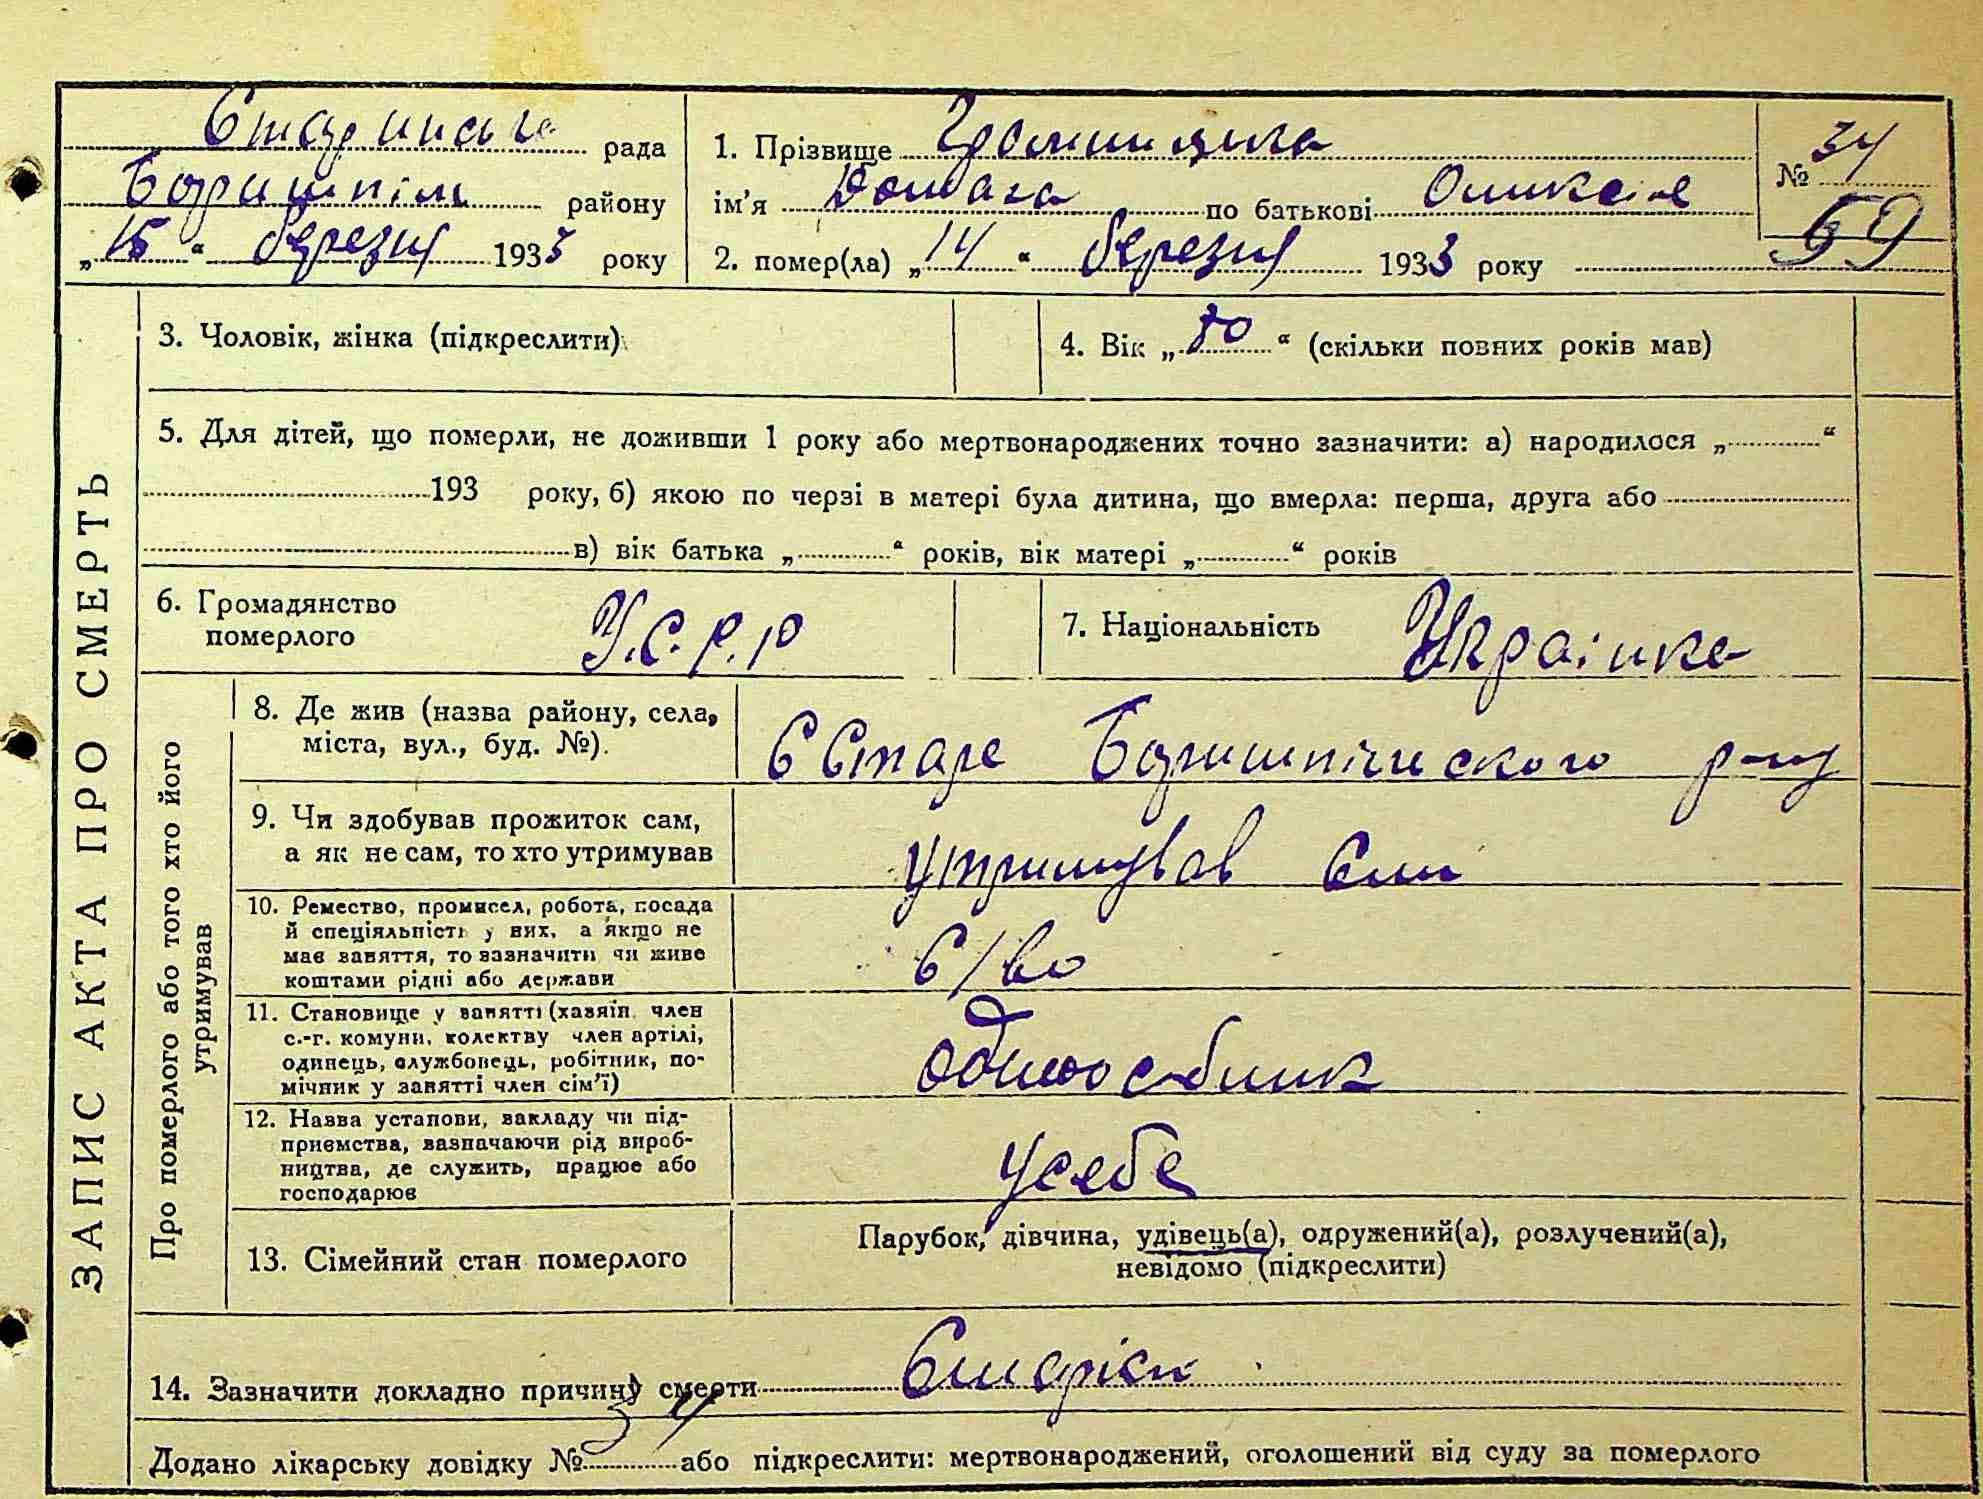 Старинська рада
Боришпіль району
„15“ березня 1933 року
1. Прізвище
ім'я по батькові
2. помер(ла) „14“ березня 1933 року
№ 34
59
ЗАПИС АКТА ПРО СМЕРТЬ
3. Чоловік, жінка (підкреслити)
4. Вік „70“ (скільки повних років мав)
5. Для дітей, що померли, не доживши 1 року або мертвонароджених точно зазначити: а) народилося „ “
193 року, б) якою по черзі в матері була дитина, що вмерла: перша, друга або
в) вік батька „ “ років, вік матері „ “ років
6. Громадянство
померлого
У.С.Р.Р
7. Національність Українка
Про померлого або того хто його
утримував
8. Де жив (назва району, села,
міста, вул., буд. №).
С Старе Боришпільського р-ну
9. Чи здобував прожиток сам,
а як не сам, то хто утримував
утримував Син
10. Ремество, промисел, робота, посада
й спеціяльність у них, а якщо не
має заняття, то зазначити чи живе
коштами рідні або держави
С/во
11. Становище у занятті (хазяїн, член
с.-г. комуни, колектву член артілі,
одинець, службовець, робітник, по-
мічник у занятті член сім'ї)
одноосібник
12. Назва установи, закладу чи під-
приємства, зазначаючи рід вироб-
ництва, де служить, працює або
господарює
усебе
13. Сімейний стан померлого
Парубок, дівчина, удівець(а), одружений(а), розлучений(а),
невідомо (підкреслити)
14. Зазначити докладно причину смерти
Додано лікарську довідку № 34 або підкреслити: мертвонароджений, оголошений від суду за померлого